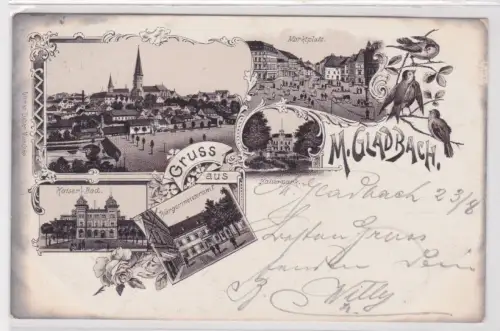 Marktplatz.
M. GLADBACH.
Gruss
aus
Kaiserpark.
Kaiser-Bad.
Bürgermeisteramt.
M Gladbach 23/8
Besten Gruss
senden Dein
Willy